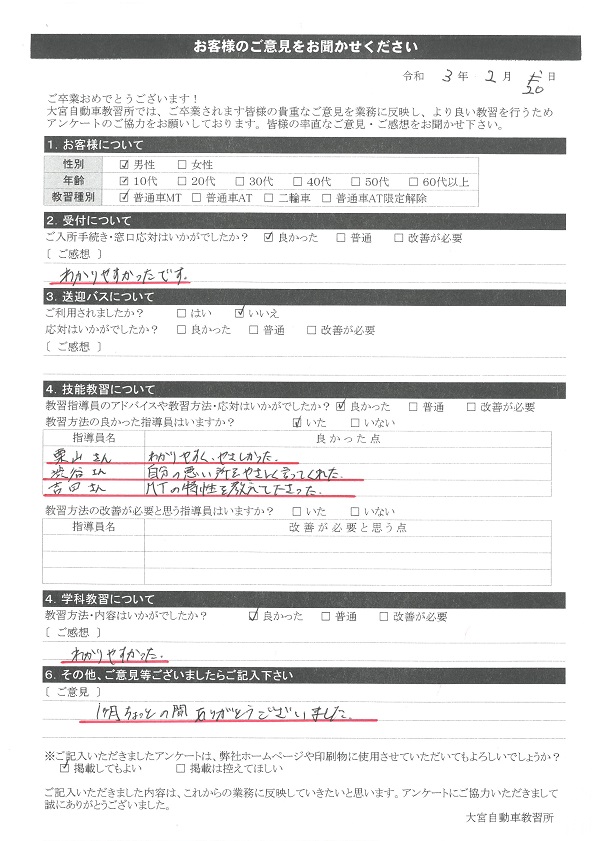 お客様のご意見をお聞かせください
令和 3 年 2 月 20 日
ご卒業おめでとうございます！
大宮自動車教習所では、ご卒業されます皆様の貴重なご意見を業務に反映し、より良い教習を行うため
アンケートのご協力をお願いしております。皆様の率直なご意見・ご感想をお聞かせ下さい。
1. お客様について
性別 ☑ 男性 □ 女性
年齢 ☑ 10代 □ 20代 □ 30代 □ 40代 □ 50代 □ 60代以上
教習種別 ☑ 普通車MT □ 普通車AT □ 二輪車 □ 普通車AT限定解除
2. 受付について
ご入所手続き・窓口応対はいかがでしたか？ ☑ 良かった □ 普通 □ 改善が必要
〔 ご感想 〕
わかりやすかったです。
3. 送迎バスについて
ご利用されましたか？ □ はい ☑ いいえ
応対はいかがでしたか？ □ 良かった □ 普通 □ 改善が必要
〔 ご感想 〕
4. 技能教習について
教習指導員のアドバイスや教習方法・応対はいかがでしたか？ ☑ 良かった □ 普通 □ 改善が必要
教習方法の良かった指導員はいますか？ ☑ いた □ いない
指導員名 良かった点
栗山さん わかりやすく、やさしかった。
渋谷さん 自分の悪い所をやさしく言ってくれた。
吉田さん MTの特性を教えて下さった。
教習方法の改善が必要と思う指導員はいますか？ □ いた □ いない
指導員名 改善が必要と思う点
4. 学科教習について
教習方法・内容はいかがでしたか？ ☑ 良かった □ 普通 □ 改善が必要
〔 ご感想 〕
わかりやすかった。
6. その他、ご意見等ございましたらご記入下さい
〔 ご意見 〕
1ヶ月ちょっとの間ありがとうございました。
※ご記入いただきましたアンケートは、弊社ホームページや印刷物に使用させていただいてもよろしいでしょうか？
☑ 掲載してもよい □ 掲載は控えてほしい
ご記入いただきました内容は、これからの業務に反映していきたいと思います。アンケートにご協力いただきまして
誠にありがとうございました。
大宮自動車教習所